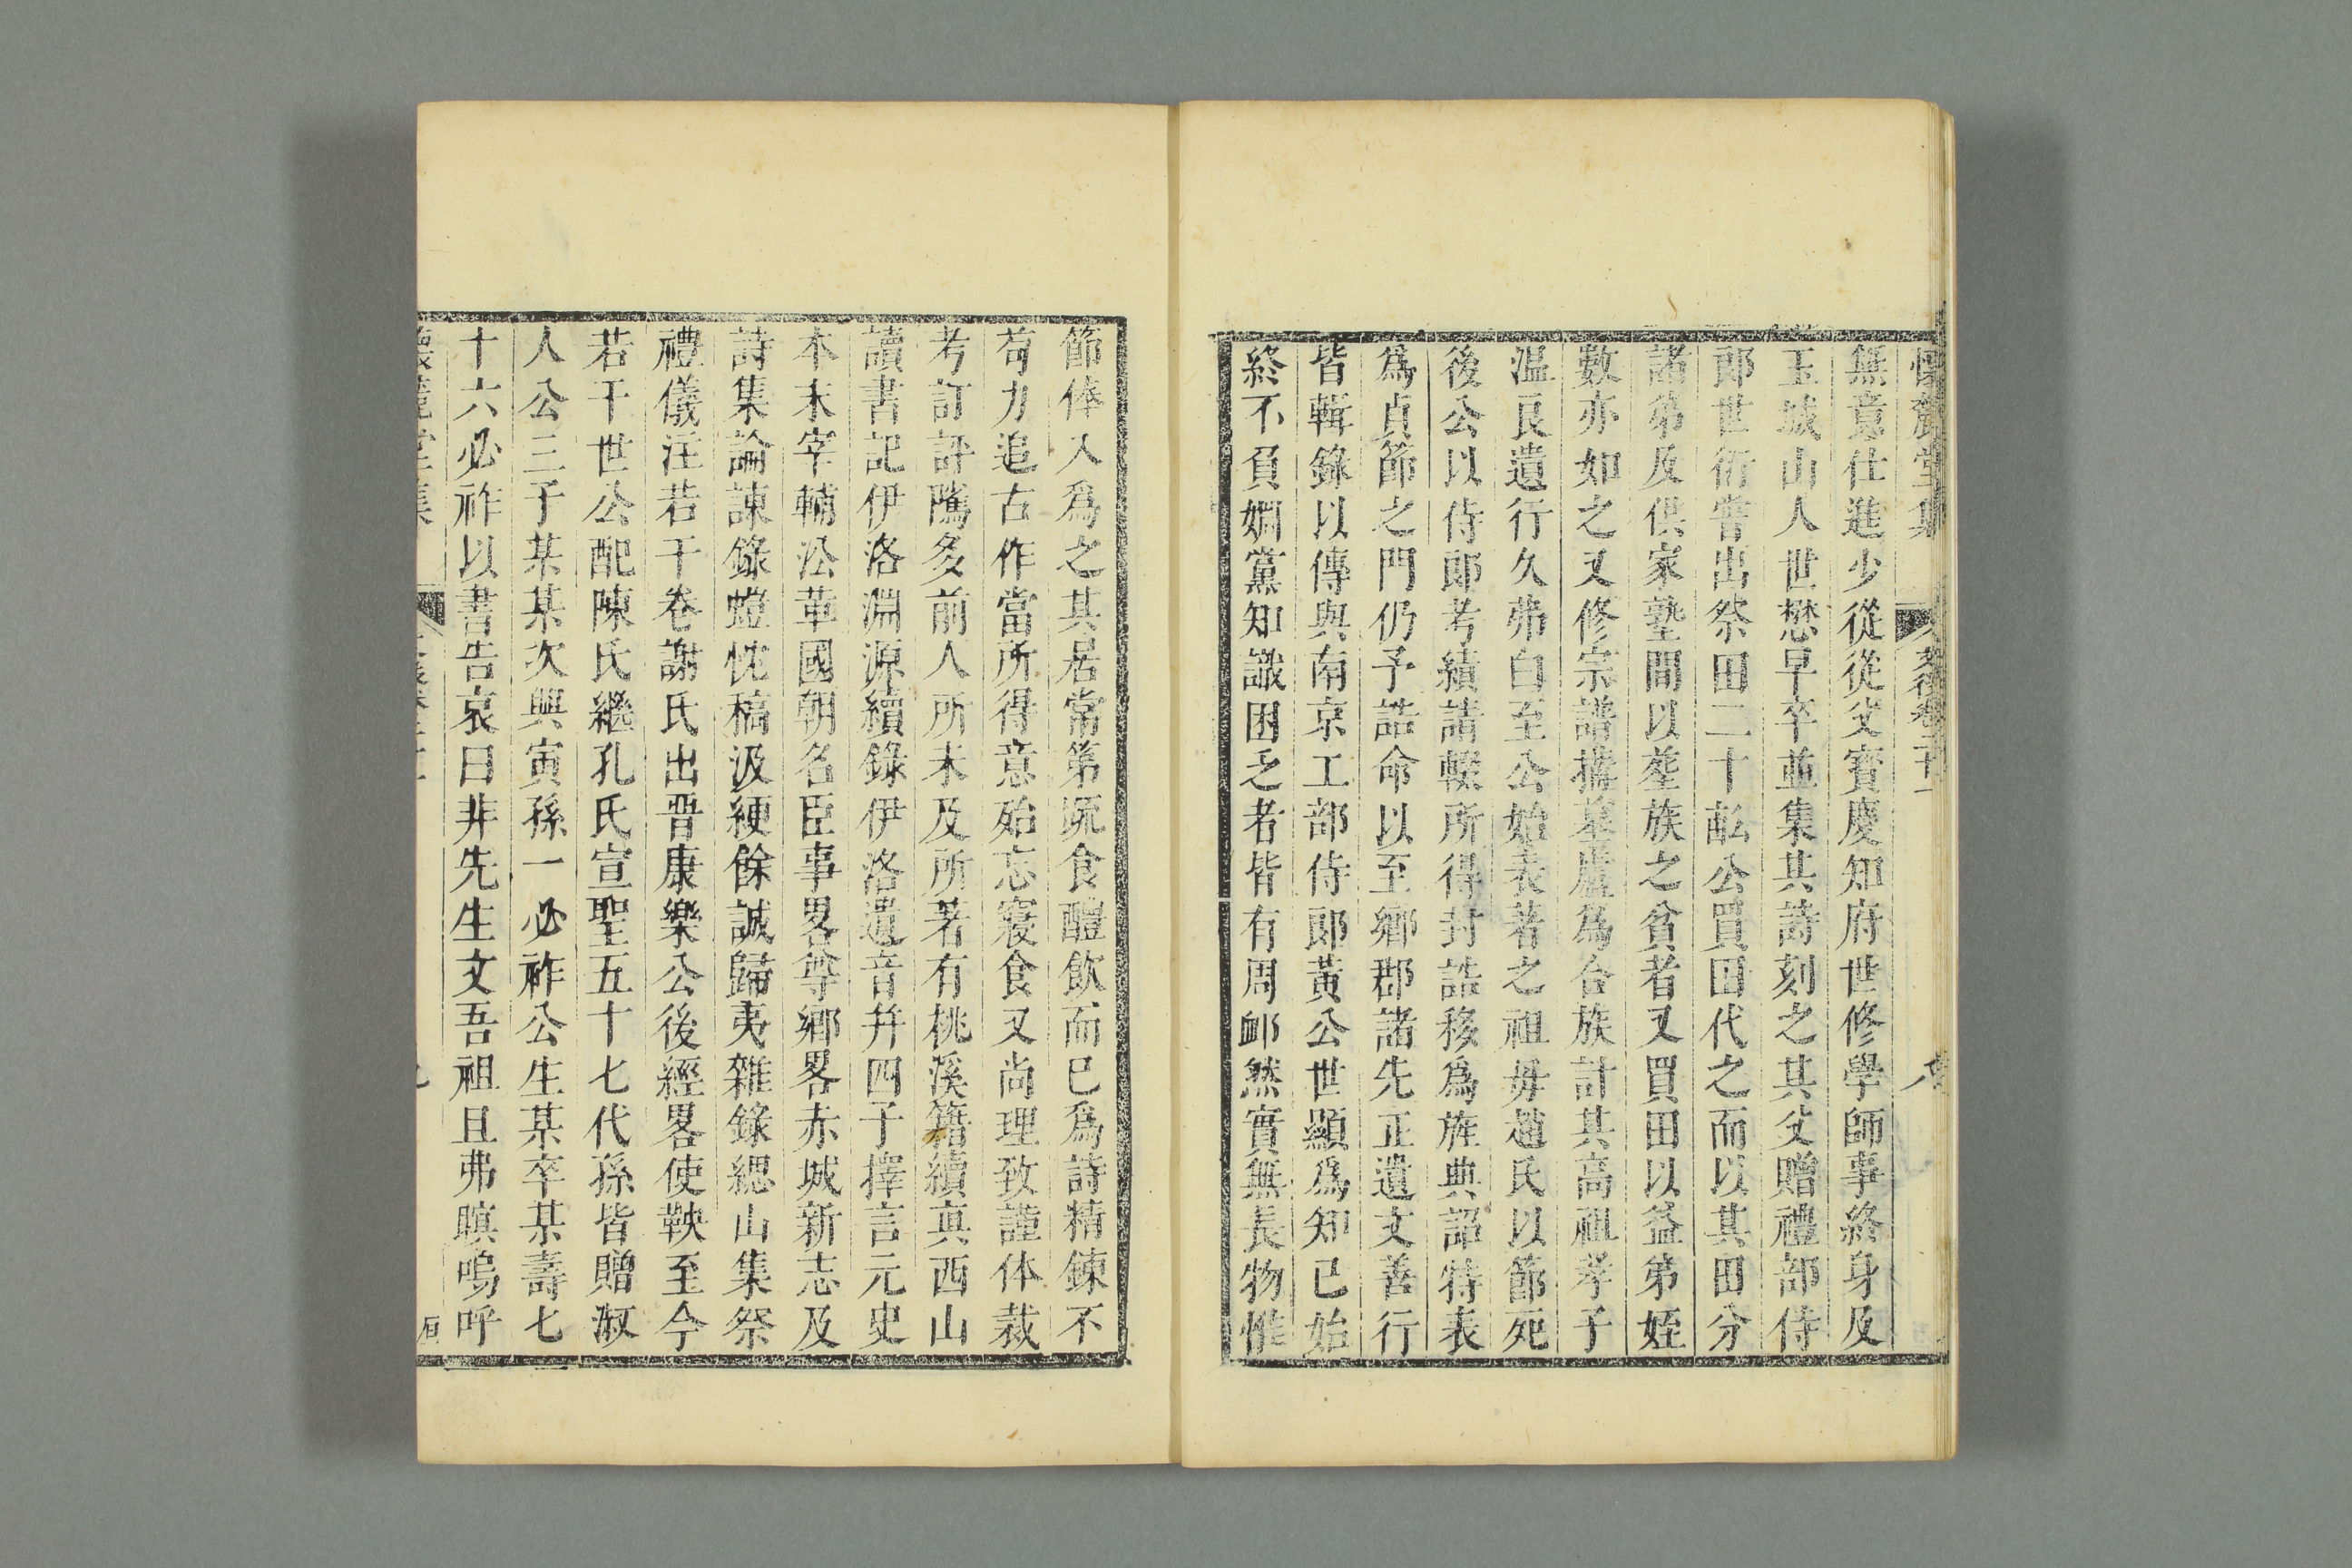 懷麓堂集 文後卷二十一
無意仕進少從從父寶慶知府世修學師事終身及
玉城山人世懋早卒並集其詩刻之其父贈禮部侍
郎世衍嘗出祭田二十畝公買田代之而以其田分
諸弟及供家塾間以塟族之貧者又買田以益弟姪
數亦如之又修宗譜搆墓廬為合族計其高祖孝子
温良遺行久弗白至公始表著之祖毋趙氏以節死
後公以侍郎考績請輟所得封誥移為旌典詔特表
為貞節之門仍予誥命以至鄉郡諸先正遺文善行
皆輯錄以傳與南京工部侍郎黃公世顯為知已始
終不負嫺黨知識困乏者皆有周卹然實無長物惟
節俸入為之其居常第疏食醴飲而巳為詩精鍊不
苟力追古作當所得意殆忘寢食又尚理致謹体裁
考訂評隲多前人所未及所著有桃溪籍續真西山
讀書記伊洛淵源續錄伊洛遺音并四子擇言元史
本末宰輔㳂革國朝名臣事畧尊鄉畧赤城新志及
詩集論諫錄螘忱稿汲綆餘誠歸夷雜錄緦山集祭
禮儀注若干卷謝氏出晉康樂公後經畧使鞅至今
若干世公配陳氏繼孔氏宣聖五十七代孫皆贈淑
人公三子某某次興寅孫一必祚公生某卒某壽七
十六必祚以書告哀曰非先生文吾祖且弗瞑嗚呼
懷麓堂集